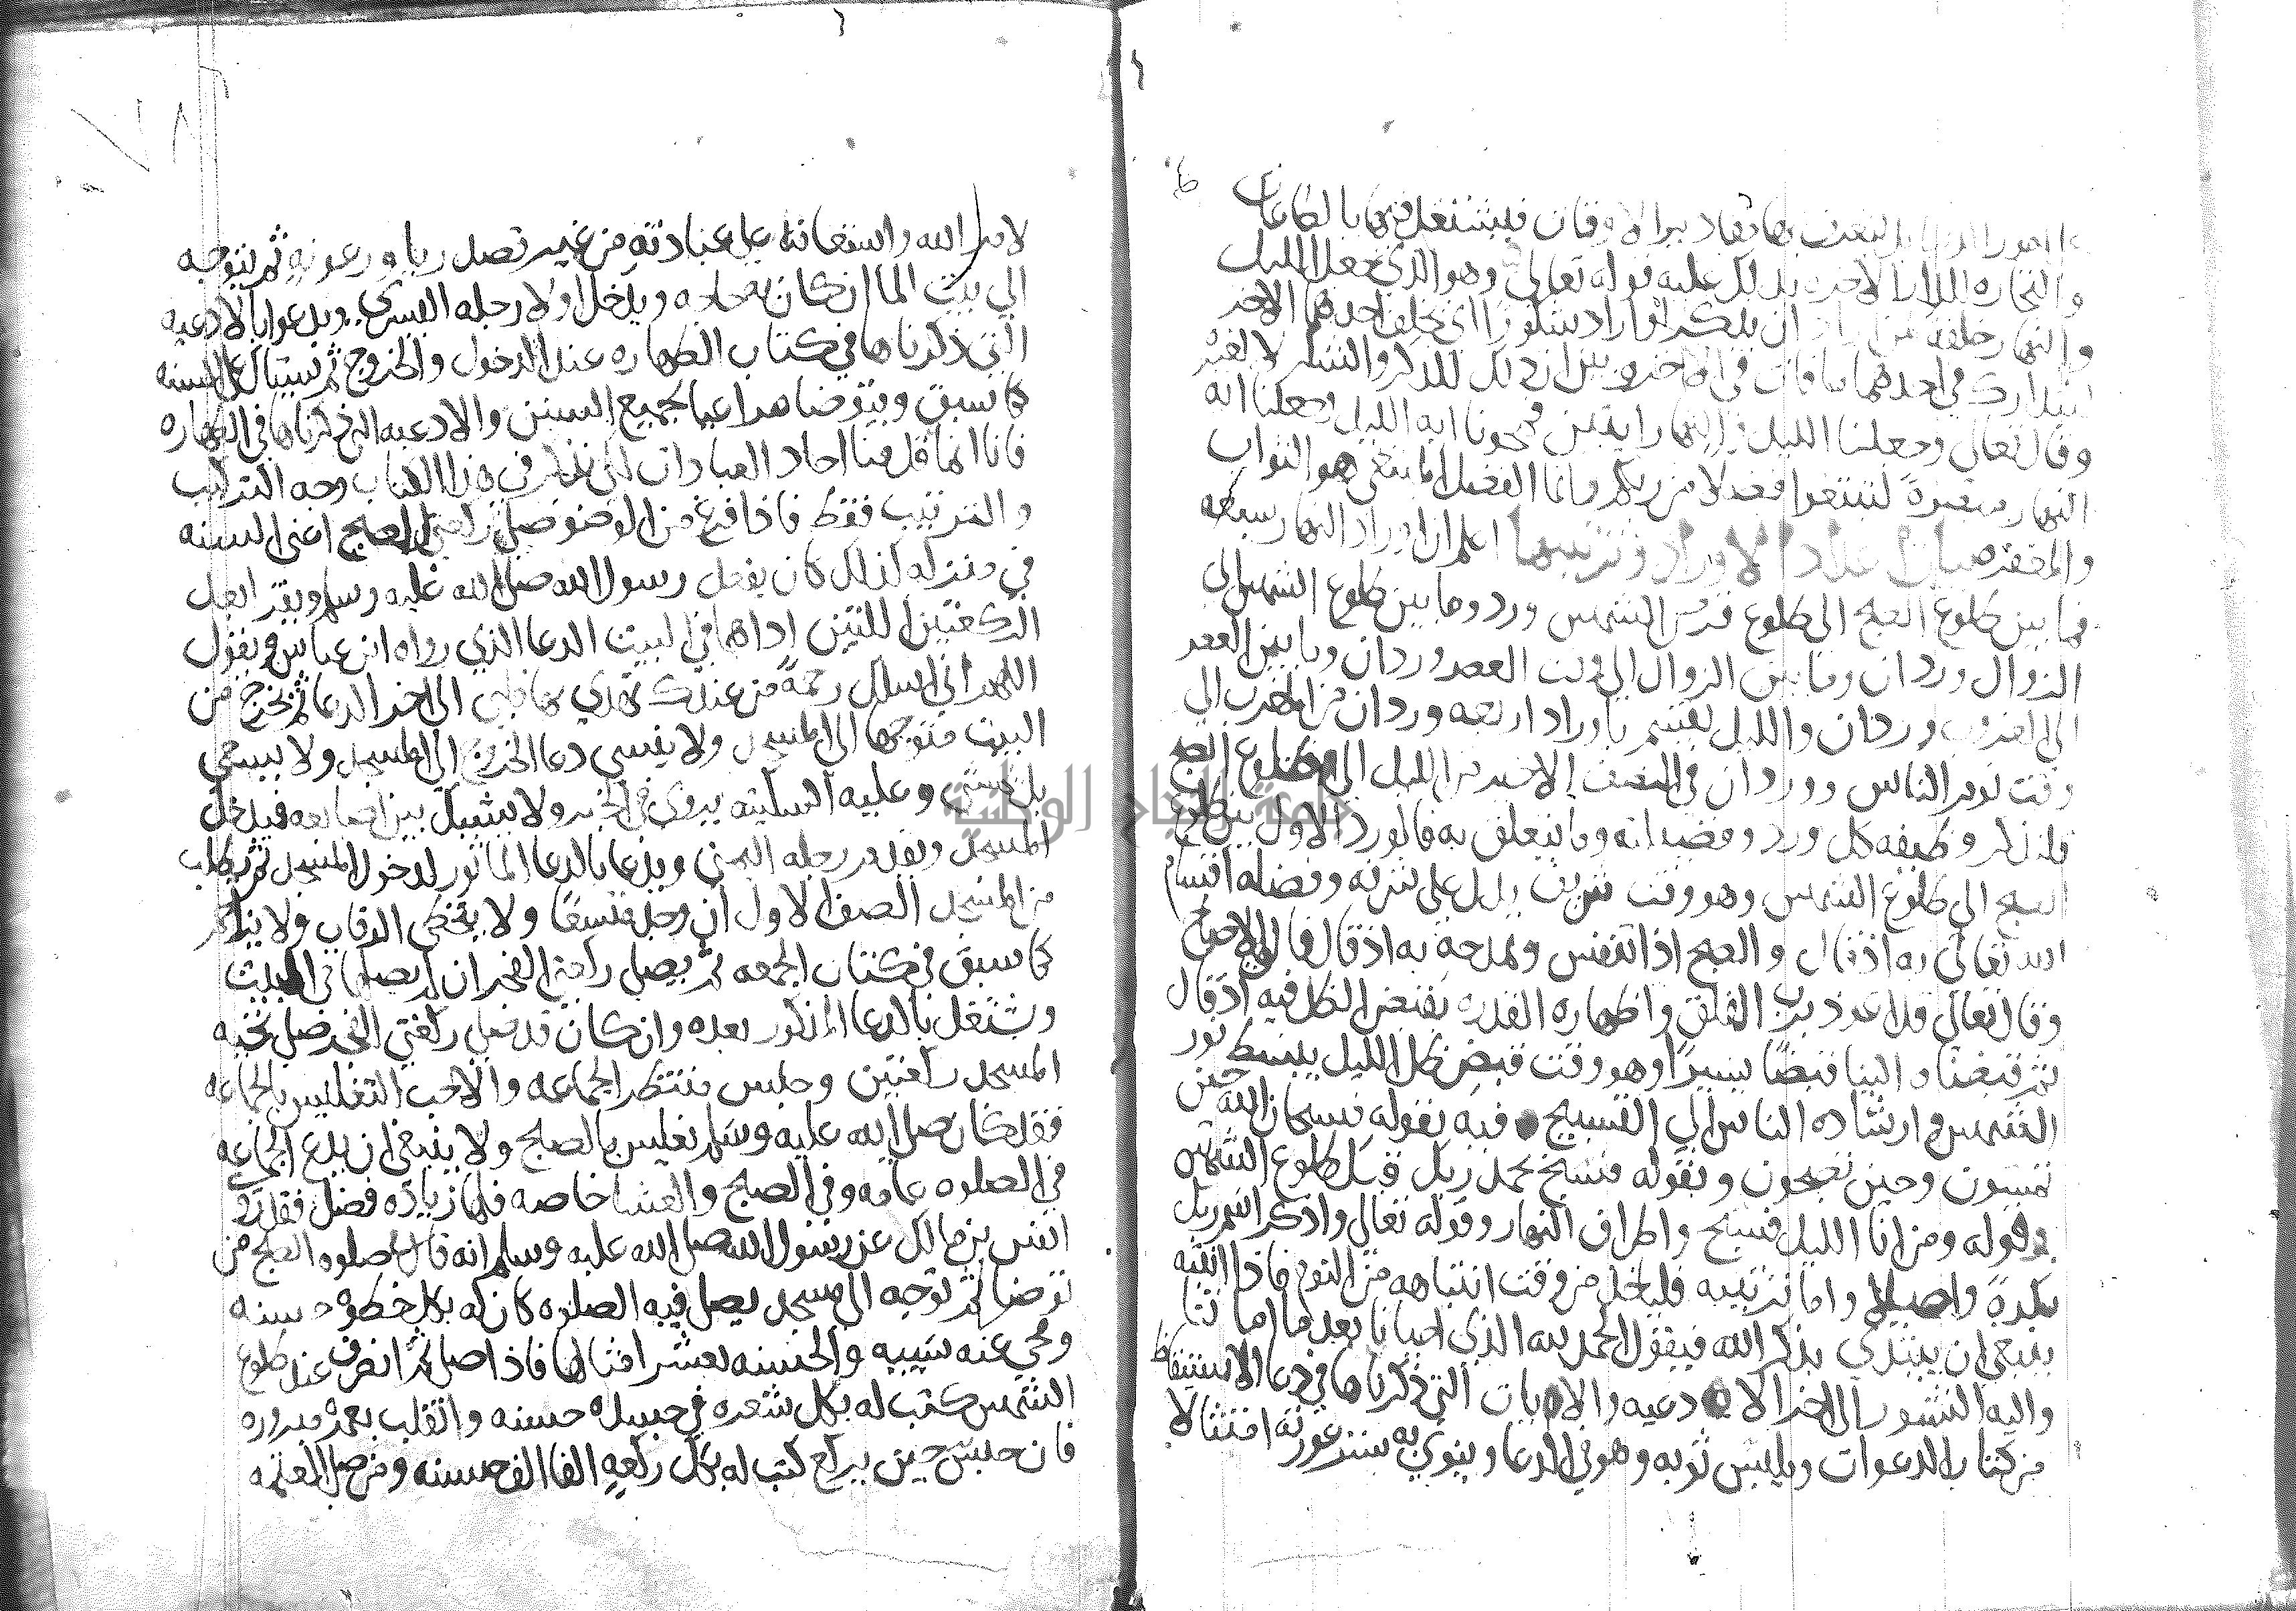 امور الدنيا بل لتعرف بها مقادير الاوقات فيشتغل فيها بالطاعات
والتجاره للدار الاخره يدلك عليه قوله تعالى وهو الذي جعل الليل
والنهار خلفة لمن اراد ان يذكر او اراد شكورا اي يخلف احدهما الاخر
ليتدارك في احدهما ما فات في الاخر وبين ان ذلك للذكر والشكر لا لغيره
وقال تعالى وجعلنا الليل والنهار ايتين فمحونا ايه الليل وجعلنا ايه
النهار مبصرة لتبتغوا فضلا من ربكم وانما الفضل المبتغى هو الثواب
والمغفره بيان عداد الاوراد وترتيبها اعلم ان اوراد النهار سبعه
فما بين طلوع الصبح الى طلوع قرص الشمس ورد وما بين طلوع الشمس الى
الزوال وردان وما بين الزوال الى وقت العصر وردان وما بين العصر
الى المغرب وردان والليل يقسم باوراد اربعه وردان من المغرب الى
وقت نوم الناس ووردان في النصف الاخير من الليل الى طلوع الصبح
فلنذكر وظيفه كل ورد وفضيلته وما يتعلق به فالورد الاول بين طلوع
الصبح الى طلوع الشمس وهو وقت شريف يدل على شرفه وفضله اقسام
الله تعالى به اذ قال والصبح اذا تنفس وتمدحه به اذ قال فالق الاصباح
وقال تعالى قل اعوذ برب الفلق واظهاره القدره بقبض الظل فيه اذ قال
ثم قبضناه الينا قبضا يسيرا وهو وقت قبض ظل الليل ببسط نور
الشمس وارشاده الناس الى التسبيح فيه بقوله فسبحان الله حين
تمسون وحين تصبحون وبقوله فسبح بحمد ربك قبل طلوع الشمس
وقوله ومن انا الليل فسبح واطراف النهار وقوله تعالى واذكر اسم ربك
بكرة واصيلا واما ترتيبه فلياخذ من وقت انتباهه من النوم فاذا انتبه
ينبغي ان يبتدي بذكر الله فيقول الحمد لله الذي احيانا بعد ما اماتنا
واليه النشور الى اخر الادعيه والايات التي ذكرناها في دعا الاستيقاظ
من كتاب الدعوات ويلبس ثوبه وهو في الدعا وينوي به ستر عورته امتثالا
لامر الله واستعانة على عبادته من غير قصد ريا ورعونه ثم يتوجه
الى بيت الما ان كان به حاجه ويدخل اولا رجله اليسرى ويدعوا بالادعيه
التي ذكرناها في كتاب الطهاره عند الدخول والخروج ثم يستاك على السنه
كما سبق ويتوضا مراعيا لجميع السنن والادعيه التي ذكرناها في الطهاره
فانا انما قدمنا احاد العبادات لكي نذكر في هذا الكتاب وجه التركيب
والترتيب فقط فاذا فرغ من الوضو صلى ركعتي الصبح اعني السنه
في منزله كذلك كان يفعل رسول الله صلى الله عليه وسلم ويقرا بعد
الركعتين اللتين اداهما في البيت الدعا الذي رواه ابن عباس ويقول
اللهم اني اسلك رحمة من عندك تهدي بها قلبي الى اخر الدعا ثم يخرج من
البيت متوجها الى المسجد ولا ينسى دعا الخروج الى المسجد ولا يسعى
بل يمشي وعليه السكينه يروى في الخبر ولا يشبك بين اصابعه فيدخل
المسجد ويقدم رجله اليمنى ويدعا بالدعا الماثور لدخول المسجد ثم يطلب
من المسجد الصف الاول ان وجد متسعا ولا يتخطى الرقاب ولا يزاحم
كما سبق في كتاب الجمعه ثم يصلي ركعتي الفجر ان لم يصلها في البيت
وشتغل بالدعا المذكور بعده وان كان قد صلى ركعتي الفجر صلى تحيه
المسجد ركعتين وجلس منتظر الجماعه والاحب التغليس بالجماعه
فقد كان صلى الله عليه وسلم يغلس بالصبح ولا ينبغي ان يدع الجماعه
في الصلوه عامه وفي الصبح والعشا خاصه فلهما زياده فضل فقد روى
انس بن مالك عن رسول الله صلى الله عليه وسلم انه قال في صلوه الصبح من
توضا ثم توجه الى مسجد يصلي فيه الصلوه كان له بكل خطوه حسنه
ومحي عنه سييه والحسنه بعشر امثالها فاذا صلى ثم انصرف عند طلوع
الشمس كتب له بكل شعره في جسده حسنه وانقلب بعمره مبروره
فان جلس حتى يركع كتب له بكل ركعه الفا الف حسنه ومن صلى العتمه
جامعة النجاح الوطنية